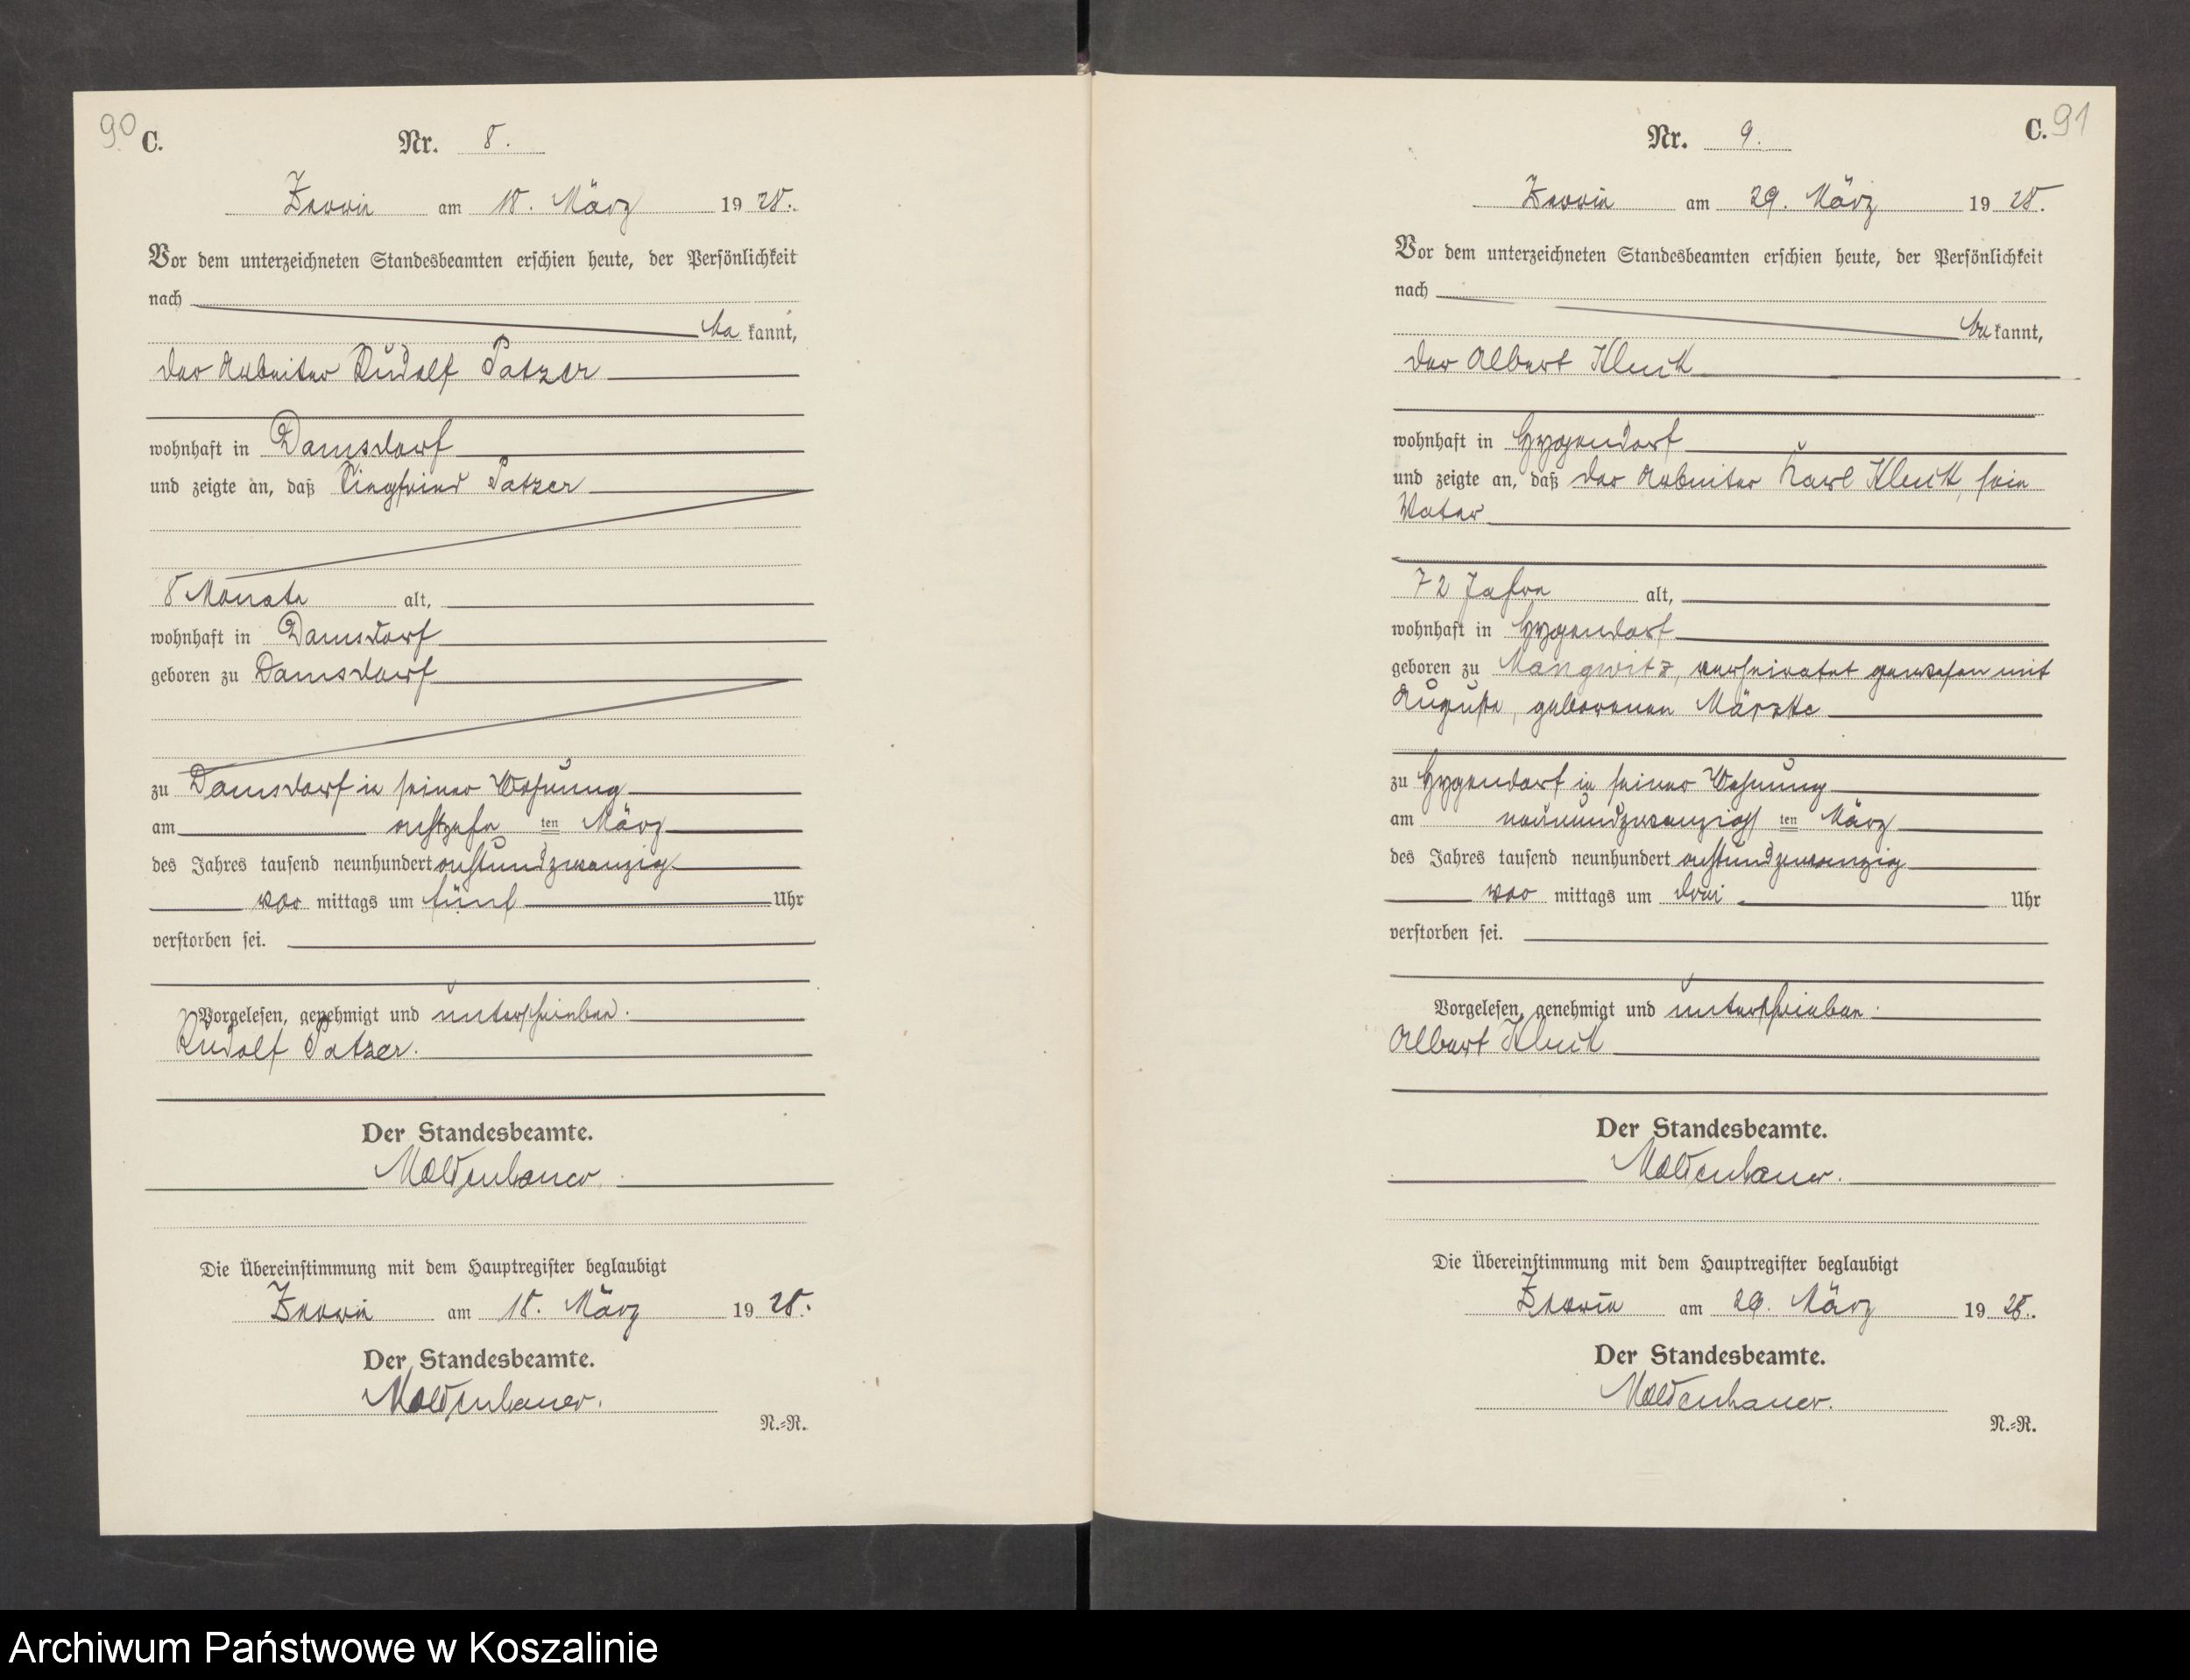 90 C.
Nr. 8.
Zerrin am 18. März 1928.
Vor dem unterzeichneten Standesbeamten erschien heute, der Persönlichkeit
nach
be kannt,
der Arbeiter Rudolf Patzer
wohnhaft in Damsdorf
und zeigte an, daß Siegfried Patzer
8 Monate alt,
wohnhaft in Damsdorf
geboren zu Damsdorf
zu Damsdorf in seiner Wohnung
am achtzehn ten März
des Jahres tausend neunhundert achtundzwanzig
vor mittags um fünf Uhr
verstorben sei.
Vorgelesen, genehmigt und unterschrieben.
Rudolf Patzer.
Der Standesbeamte.
Moldenhauer.
Die Übereinstimmung mit dem Hauptregister beglaubigt
Zerrin am 18. März 1928.
Der Standesbeamte.
Moldenhauer.
N.=R.
C. 91
Nr. 9.
Zerrin am 29. März 1928.
Vor dem unterzeichneten Standesbeamten erschien heute, der Persönlichkeit
nach
be kannt,
der Albert Kluck
wohnhaft in Hygendorf
und zeigte an, daß der Arbeiter Karl Kluck, sein
Vater
72 Jahre alt,
wohnhaft in Hygendorf
geboren zu Mangwitz, verheiratet gewesen mit
Auguste, geborenen
zu Hygendorf in seiner Wohnung
am neunundzwanzigs ten März
des Jahres tausend neunhundert achtundzwanzig
vor mittags um drei Uhr
verstorben sei.
Vorgelesen, genehmigt und unterschrieben.
Albert Kluck
Der Standesbeamte.
Moldenhauer.
Die Übereinstimmung mit dem Hauptregister beglaubigt
Zerrin am 29. März 1928.
Der Standesbeamte.
Moldenhauer.
N.=R.
Archiwum Państwowe w Koszalinie